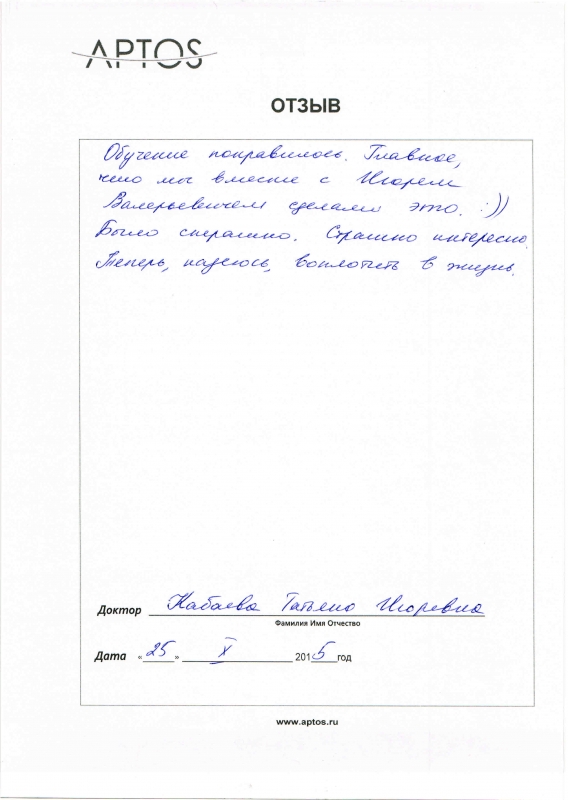 APTOS
ОТЗЫВ
Обучение понравилось. Главное,
что мы вместе с Игорем
Валерьевичем сделали это. :))
Было страшно. Страшно интересно.
Теперь, надеюсь, воплотить в жизнь.
Доктор Кабаева Татьяна Игоревна
Фамилия Имя Отчество
Дата «25» X 2015 год
www.aptos.ru